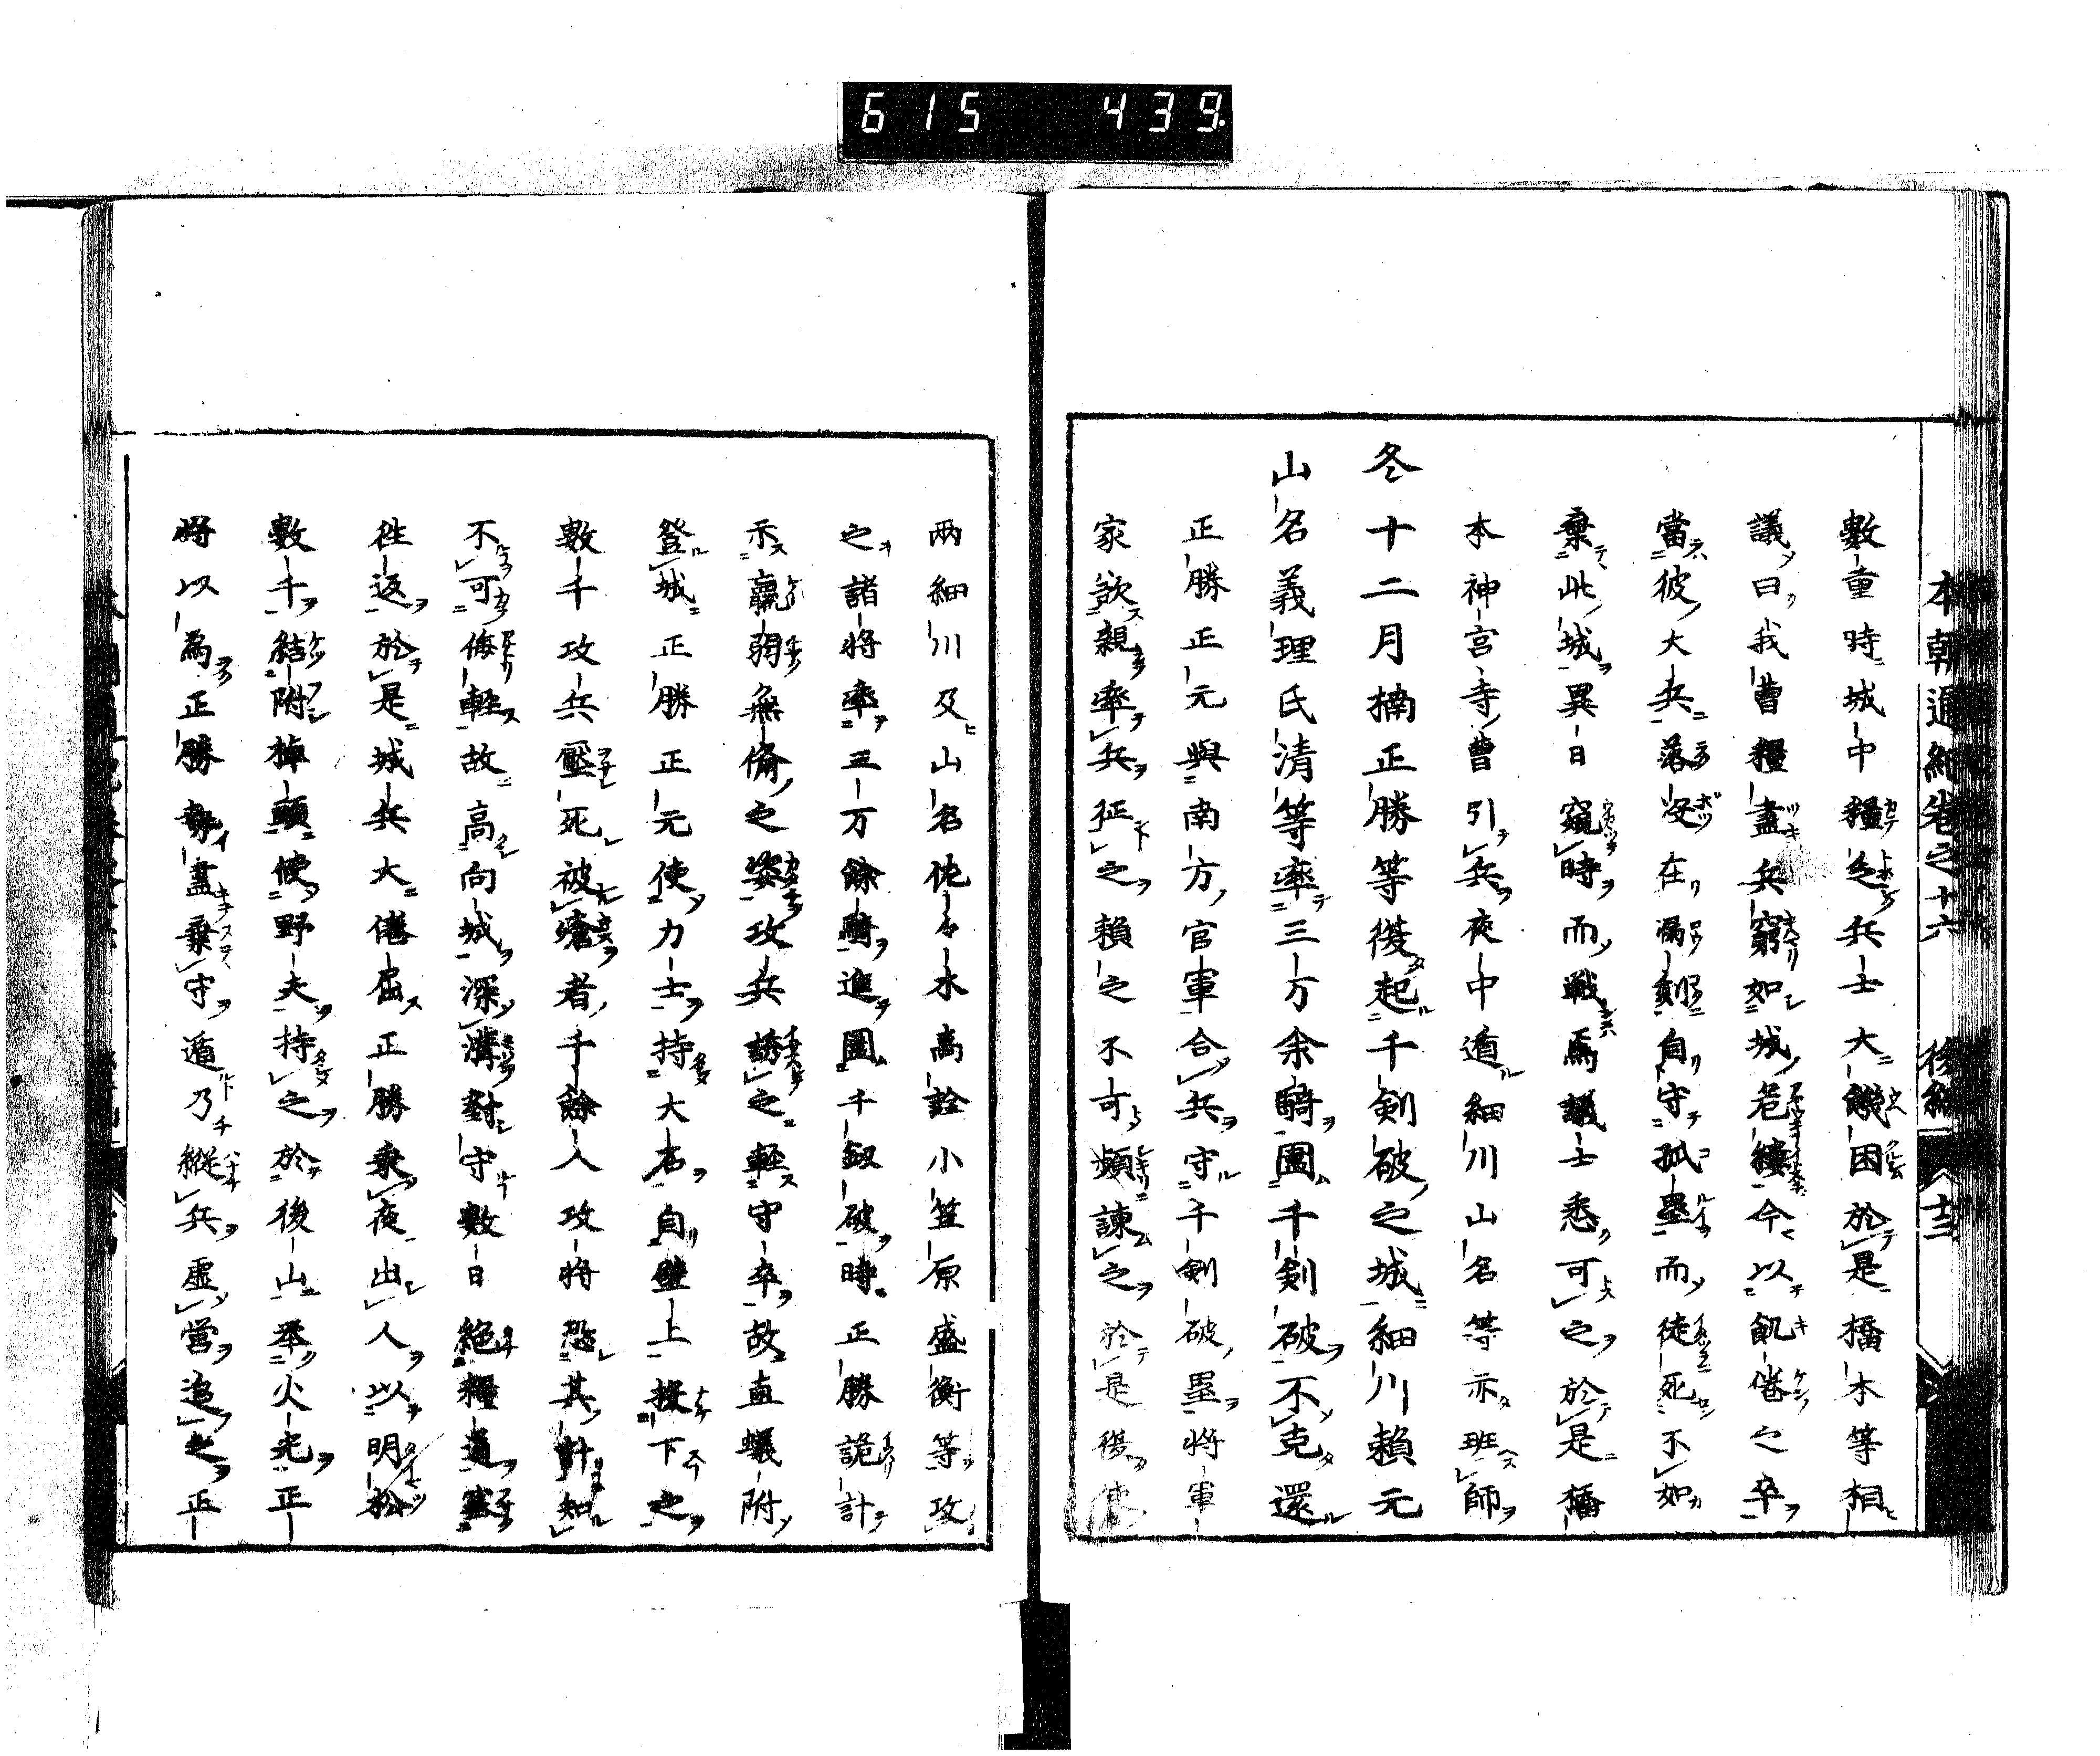 615 439
本朝通紀卷之十六 後編 十二
數重時城中糧乏兵士大饑困於是橋本等相
議曰我曹糧盡兵窮如城危纏今以飢倦之卒
當彼大兵落沒在漏刻自守孤壘而徒死不如
棄此城異日窺時而戰焉議士悉可之於是橋
本神宮寺曹引兵夜中遁細川山名等亦班師
冬十二月楠正勝等復起千剣破之城細川賴元
山名義理氏清等率三万余騎圍千剣破不克還
正勝正元與南方官軍合兵守千剣破壘將軍
家欲親率兵征之賴之不可頻諫之於是復使
兩細川及山名佐々木高詮小笠原盛衡等攻
之諸將率三万餘騎進圍千釼破時正勝詭計
示羸弱無備之姿攻兵誘之輕守卒故直蟻附
登城正勝正元使力士持大石自壁上投下之
數千攻兵壓死被瘡者千餘人攻將恐其計知
不可侮輕故高向城深溝對守數日絕糧道塞
往返於是城兵大倦屈正勝乘夜出人以明松
數千結附掉頭使野夫持之於後山舉火光正
將以為正勝勢盡棄守遁乃縱兵虛營追之正